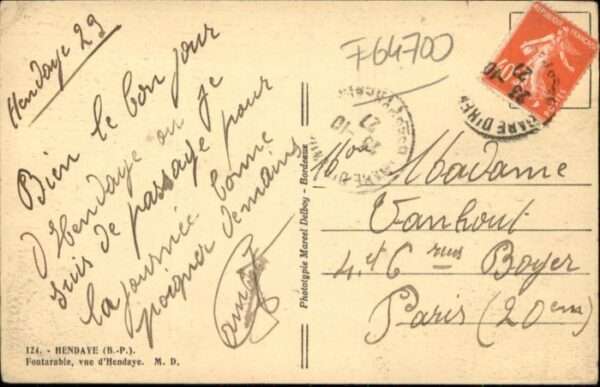 Hendaye 29
Bien le bon jour
d'Hendaye ou je
suis de passage pour
la journée. bonne
poigner demains
F64700
REPUBLIQUE FRANÇAISE
40
GARE D'HEN
23-10
Madame
Vanhout
4 et 6 rue Boyer
Paris (20em)
Phototypie Marcel Delboy - Bordeaux
124. - HENDAYE (B.-P.).
Fontarabie, vue d'Hendaye. M. D.